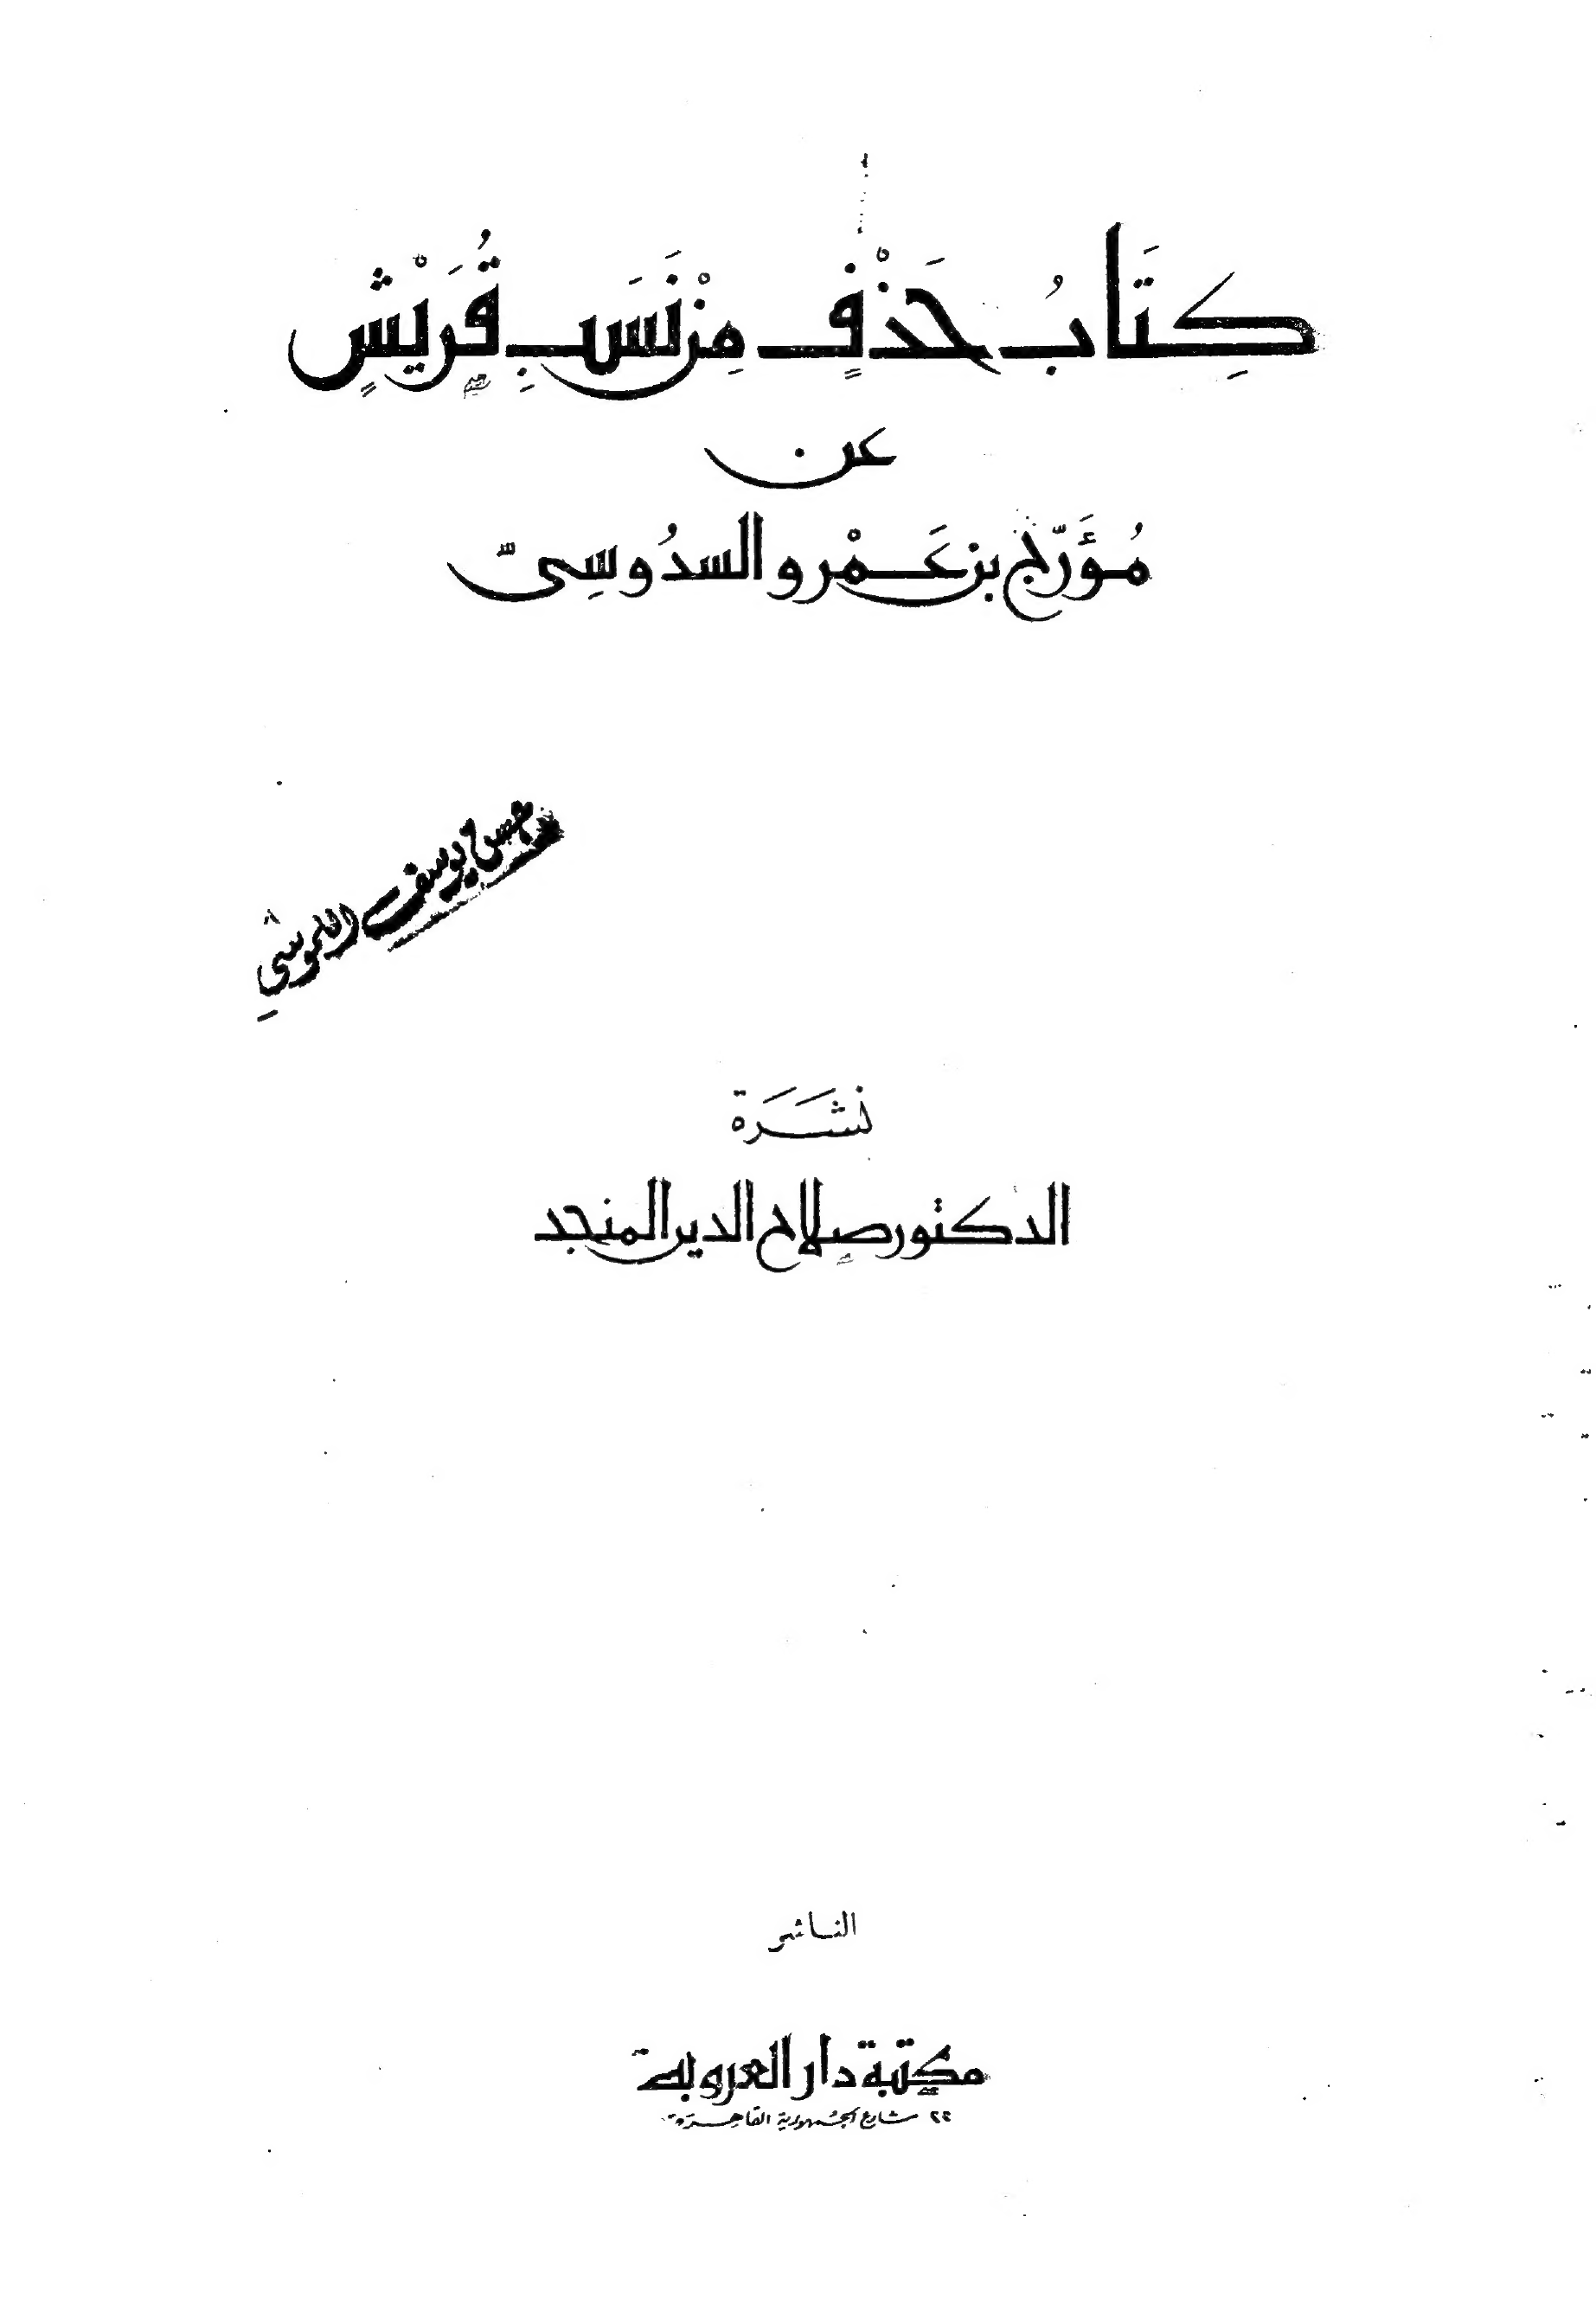 كِتَابُ حَذْفٍ مِنْ نَسَبِ قُرَيْشٍ
عن
مُؤَرِّج بن عَمْرو السدُوسِيّ
حسن يوسف
نشَرَة
الدكتور صلاح الدين المنجد
الناشر
مكتبة دار العروبة
٢٢ شارع الجمهورية القاهرة